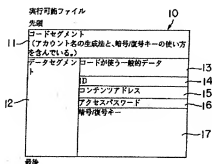 実行可能ファイル
10
先頭
11
コードセグメント
(アカウント名の生成法と、暗号/復号キーの使い方
を含んでいる。)
データセグメント
コードが使う一般的データ
13
ID
14
コンテンツアドレス
15
アクセスパスワード
16
暗号/復号キー
12
17
最後